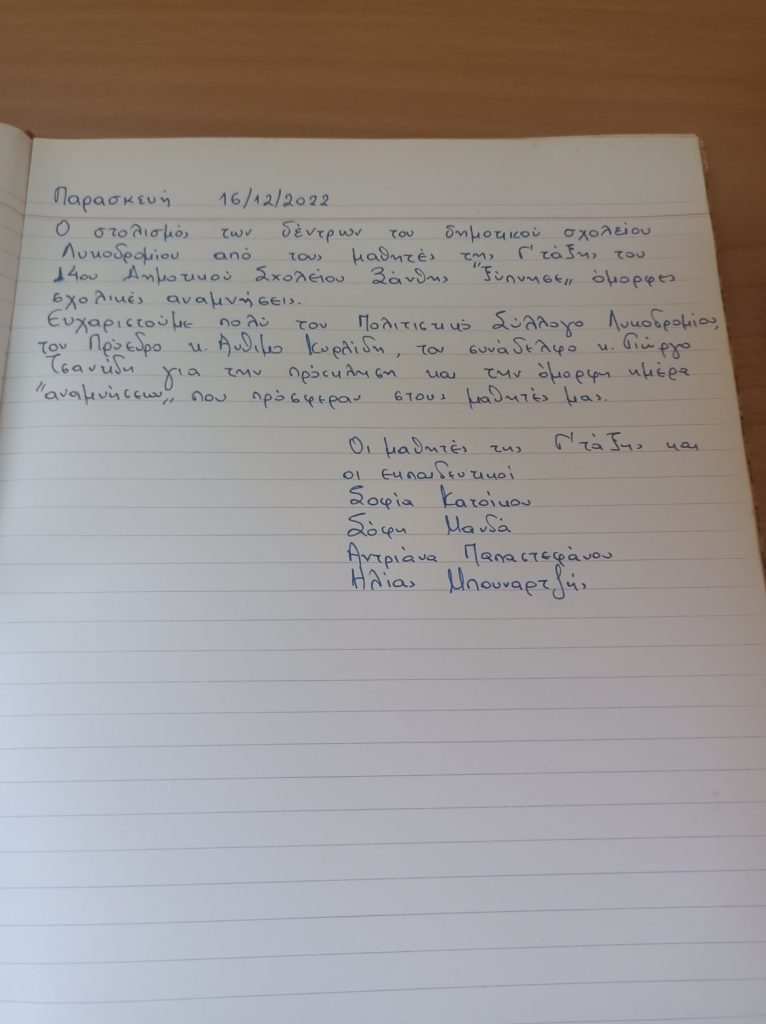 Παρασκευή 16/12/2022
Ο στολισμός των δέντρων του δημοτικού σχολείου
Λυκοδρομίου από τους μαθητές της Γ' τάξης του
14ου Δημοτικού Σχολείου Ξάνθης "ξύπνησε" όμορφες
σχολικές αναμνήσεις.
Ευχαριστούμε πολύ τον Πολιτιστικό Σύλλογο Λυκοδρομίου,
τον Πρόεδρο κ. Άνθιμο Κυρλίδη, τον συνάδελφο κ. Γιώργο
Τσανίδη για την πρόσκληση και την όμορφη ημέρα
"αναμνήσεων" που πρόσφεραν στους μαθητές μας.
Οι μαθητές της Γ' τάξης και
οι εκπαιδευτικοί
Σοφία Κατσίκου
Σόφη Μανδά
Αντριάνα Παπαστεφάνου
Ηλίας Μπουναρτζής